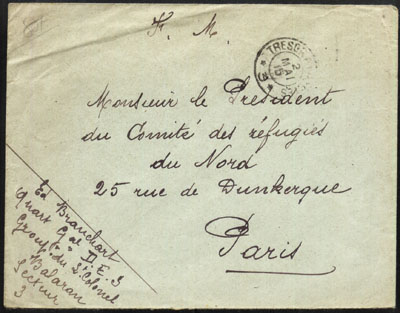 F. M.
TRESOR
2
MAI
15
* 3 *
Monsieur le Président
du Comité des réfugiés
du Nord
25 rue de Dunkerque
Paris
Ed Branchart
Quart Gal D.E.S
Group. du Lt Colonel
Balaran
Secteur
3